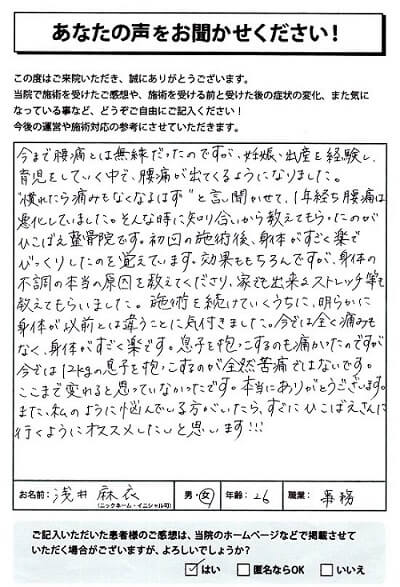 あなたの声をお聞かせください!
この度はご来院いただき、誠にありがとうございます。
当院で施術を受けたご感想や、施術を受ける前と受けた後の症状の変化、また気に
なっている事など、どうぞご自由にご記入ください!
今後の運営や施術対応の参考にさせていただきます。
今まで腰痛とは無縁だったのですが、妊娠、出産を経験し、
育児をしていく中で、腰痛が出てくるようになりました。
"慣れたら痛みもなくなるはず"と言い聞かせて、1年経ち腰痛は
悪化していました。そんな時に知り合いから教えてもらったのが
ひこばえ整骨院です。初回の施術後、身体がすごく楽で
びっくりしたのを覚えています。効果ももちろんですが、身体の
不調の本当の原因を教えてくださり、家でも出来るストレッチ等も
教えてもらいました。施術を続けていくうちに、明らかに
身体が以前とは違うことに気付きました。今では全く痛みも
なく、身体がすごく楽です。息子を抱っこするのも痛かったのですが
今では12kgの息子を抱っこするのが全然苦痛ではないです。
ここまで変われると思っていなかったです。本当にありがとうございます。
また、私のように悩んでいる方がいたら、すぐにひこばえさんに
行くようにオススメしたいと思います!!!
お名前: 浅井 麻衣 (ニックネーム・イニシャル可) 男・女 年齢: 26 職業: 事務
ご記入いただいた患者様のご感想は、当院のホームページなどで掲載させて
いただく場合がございますが、よろしいでしょうか?
はい 匿名ならOK いいえ